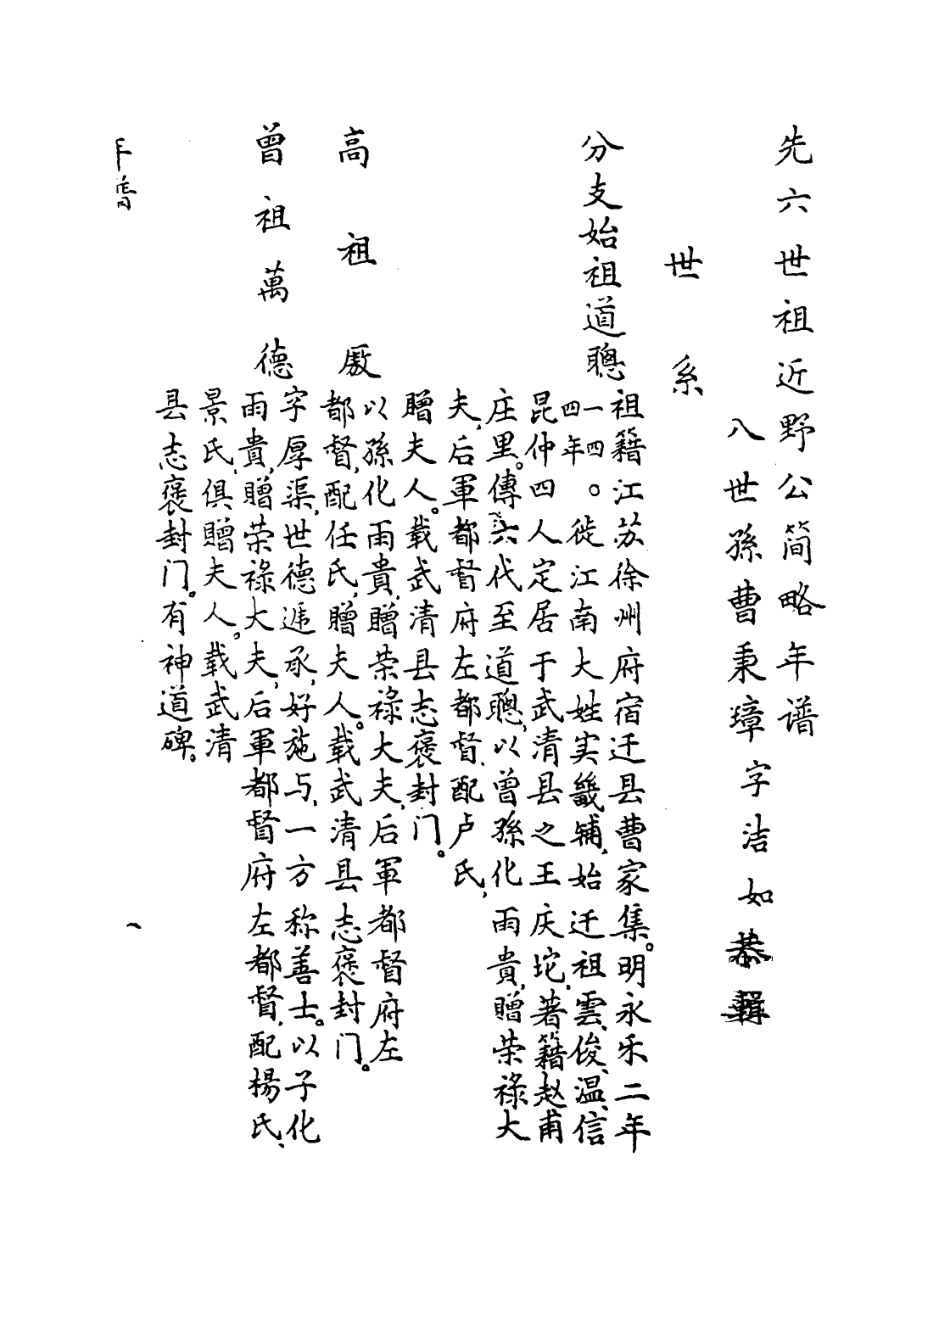 先六世祖近野公简略年谱
八世孫曹秉璋字洁如恭輯
世系
分支始祖道聰
祖籍江苏徐州府宿迁县曹家集。明永乐二年
一四〇四年徙江南大姓实畿辅,始迁祖雲、俊、温、信
昆仲四人定居于武清县之王庆坨,著籍赵甫
庄里。傳六代至道聰,以曾孫化雨貴,贈荣祿大
夫,后軍都督府左都督,配卢氏,
贈夫人。载武清县志褒封门。
高祖厫
以孫化雨貴,贈荣祿大夫,后軍都督府左
都督,配任氏,贈夫人。载武清县志褒封门。
曾祖萬德
字厚渠,世德逓承,好施与,一方称善士。以子化
雨貴,贈荣祿大夫,后軍都督府左都督,配楊氏、
景氏,俱贈夫人。载武清
县志褒封门。有神道碑。
年谱
一